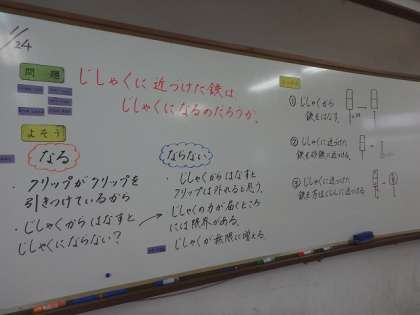 1/24
問題
じしゃくに近づけた鉄は
じしゃくになるのだろうか。
よそう
なる
・クリップがクリップを
引きつけているから
・じしゃくからはなすと
じしゃくにならない？
ならない
・じしゃくからはなすと
クリップは外れると思う。
じしゃくの力が届くところ
には限界がある。
じしゃくが無限に増える。
① じしゃくから
鉄をはなす。
② じしゃくに近づけた
鉄を砂鉄に近づける。
③ じしゃくに近づけた
鉄を方位じしんに近づける